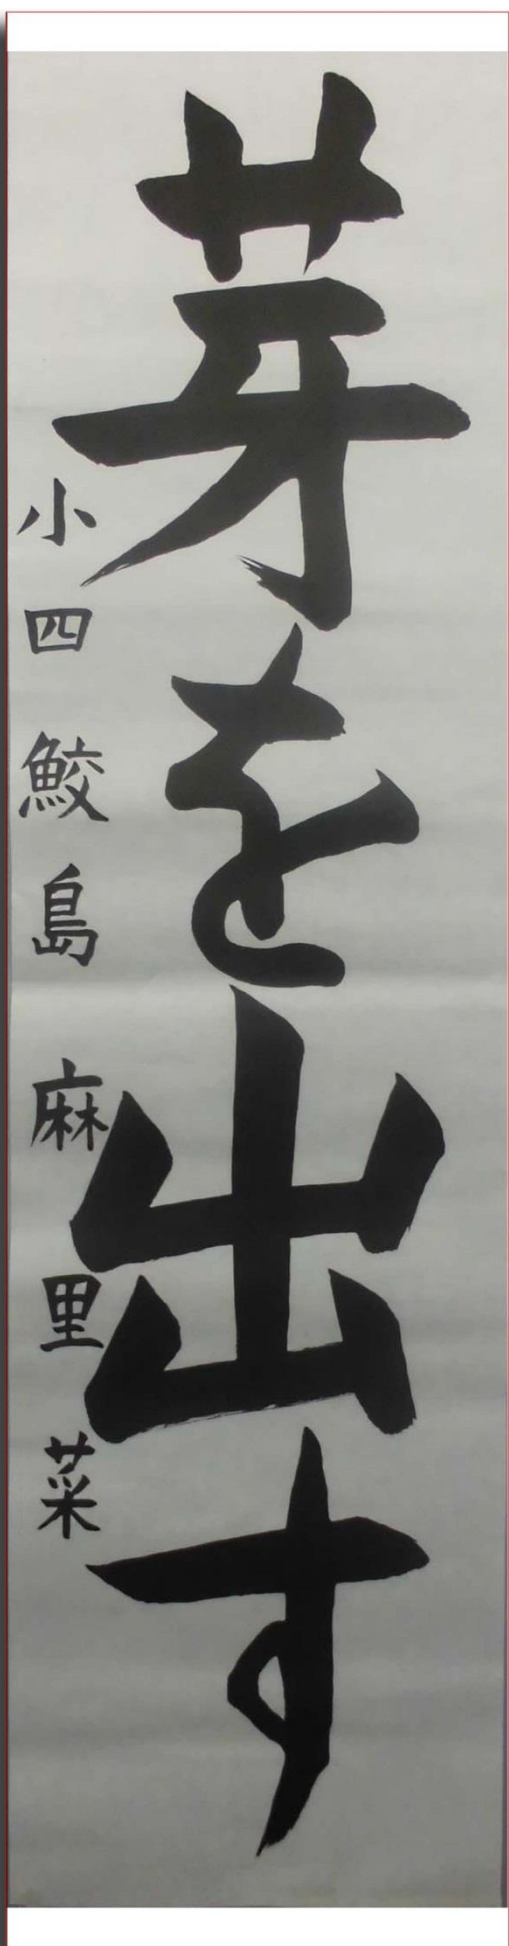 芽を出す
小四 鮫島 麻里菜